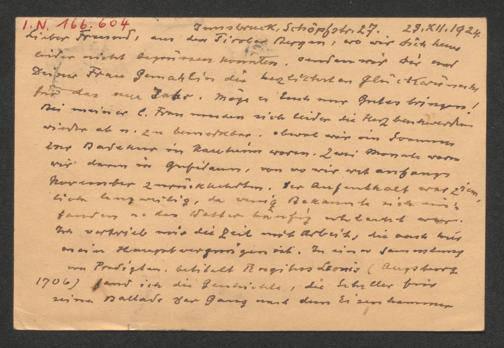 I.N. 166.604
Innsbruck, Schöpfstr. 27. 29.XII.1924
Lieber Freund, aus den Tiroler Bergen, wo wir Dich heuer
leider nicht begrüssen konnten, senden wir Dir und
Deiner Frau Gemahlin die herzlichsten Glückwünsche
für das neue Jahr. Möge es Euch nur Gutes bringen!
Bei meiner l. Frau machen sich leider die Herzbeschwerden
wieder ab u. zu bemerkbar, obwol wir im Sommer
zur Badekur in Nauheim waren. Zwei Monate waren
wir dann in Gufidaun, von wo wir erst anfangs
November zurückkehrten. Der Aufenthalt war ziem-
lich langweilig, da wenig Bekannte sich ein-
fanden u. das Wetter häufig schlecht war.
Ich vertrieb mir die Zeit mit Arbeit, die auch hier
mein Hauptvergnügen ist. In einer Sammlung
von Predigten, betitelt Rugitus Leonis (Augsburg
1706) fand ich die Geschichte, die Schiller für
seine Ballade Der Gang nach dem Eisenhammer